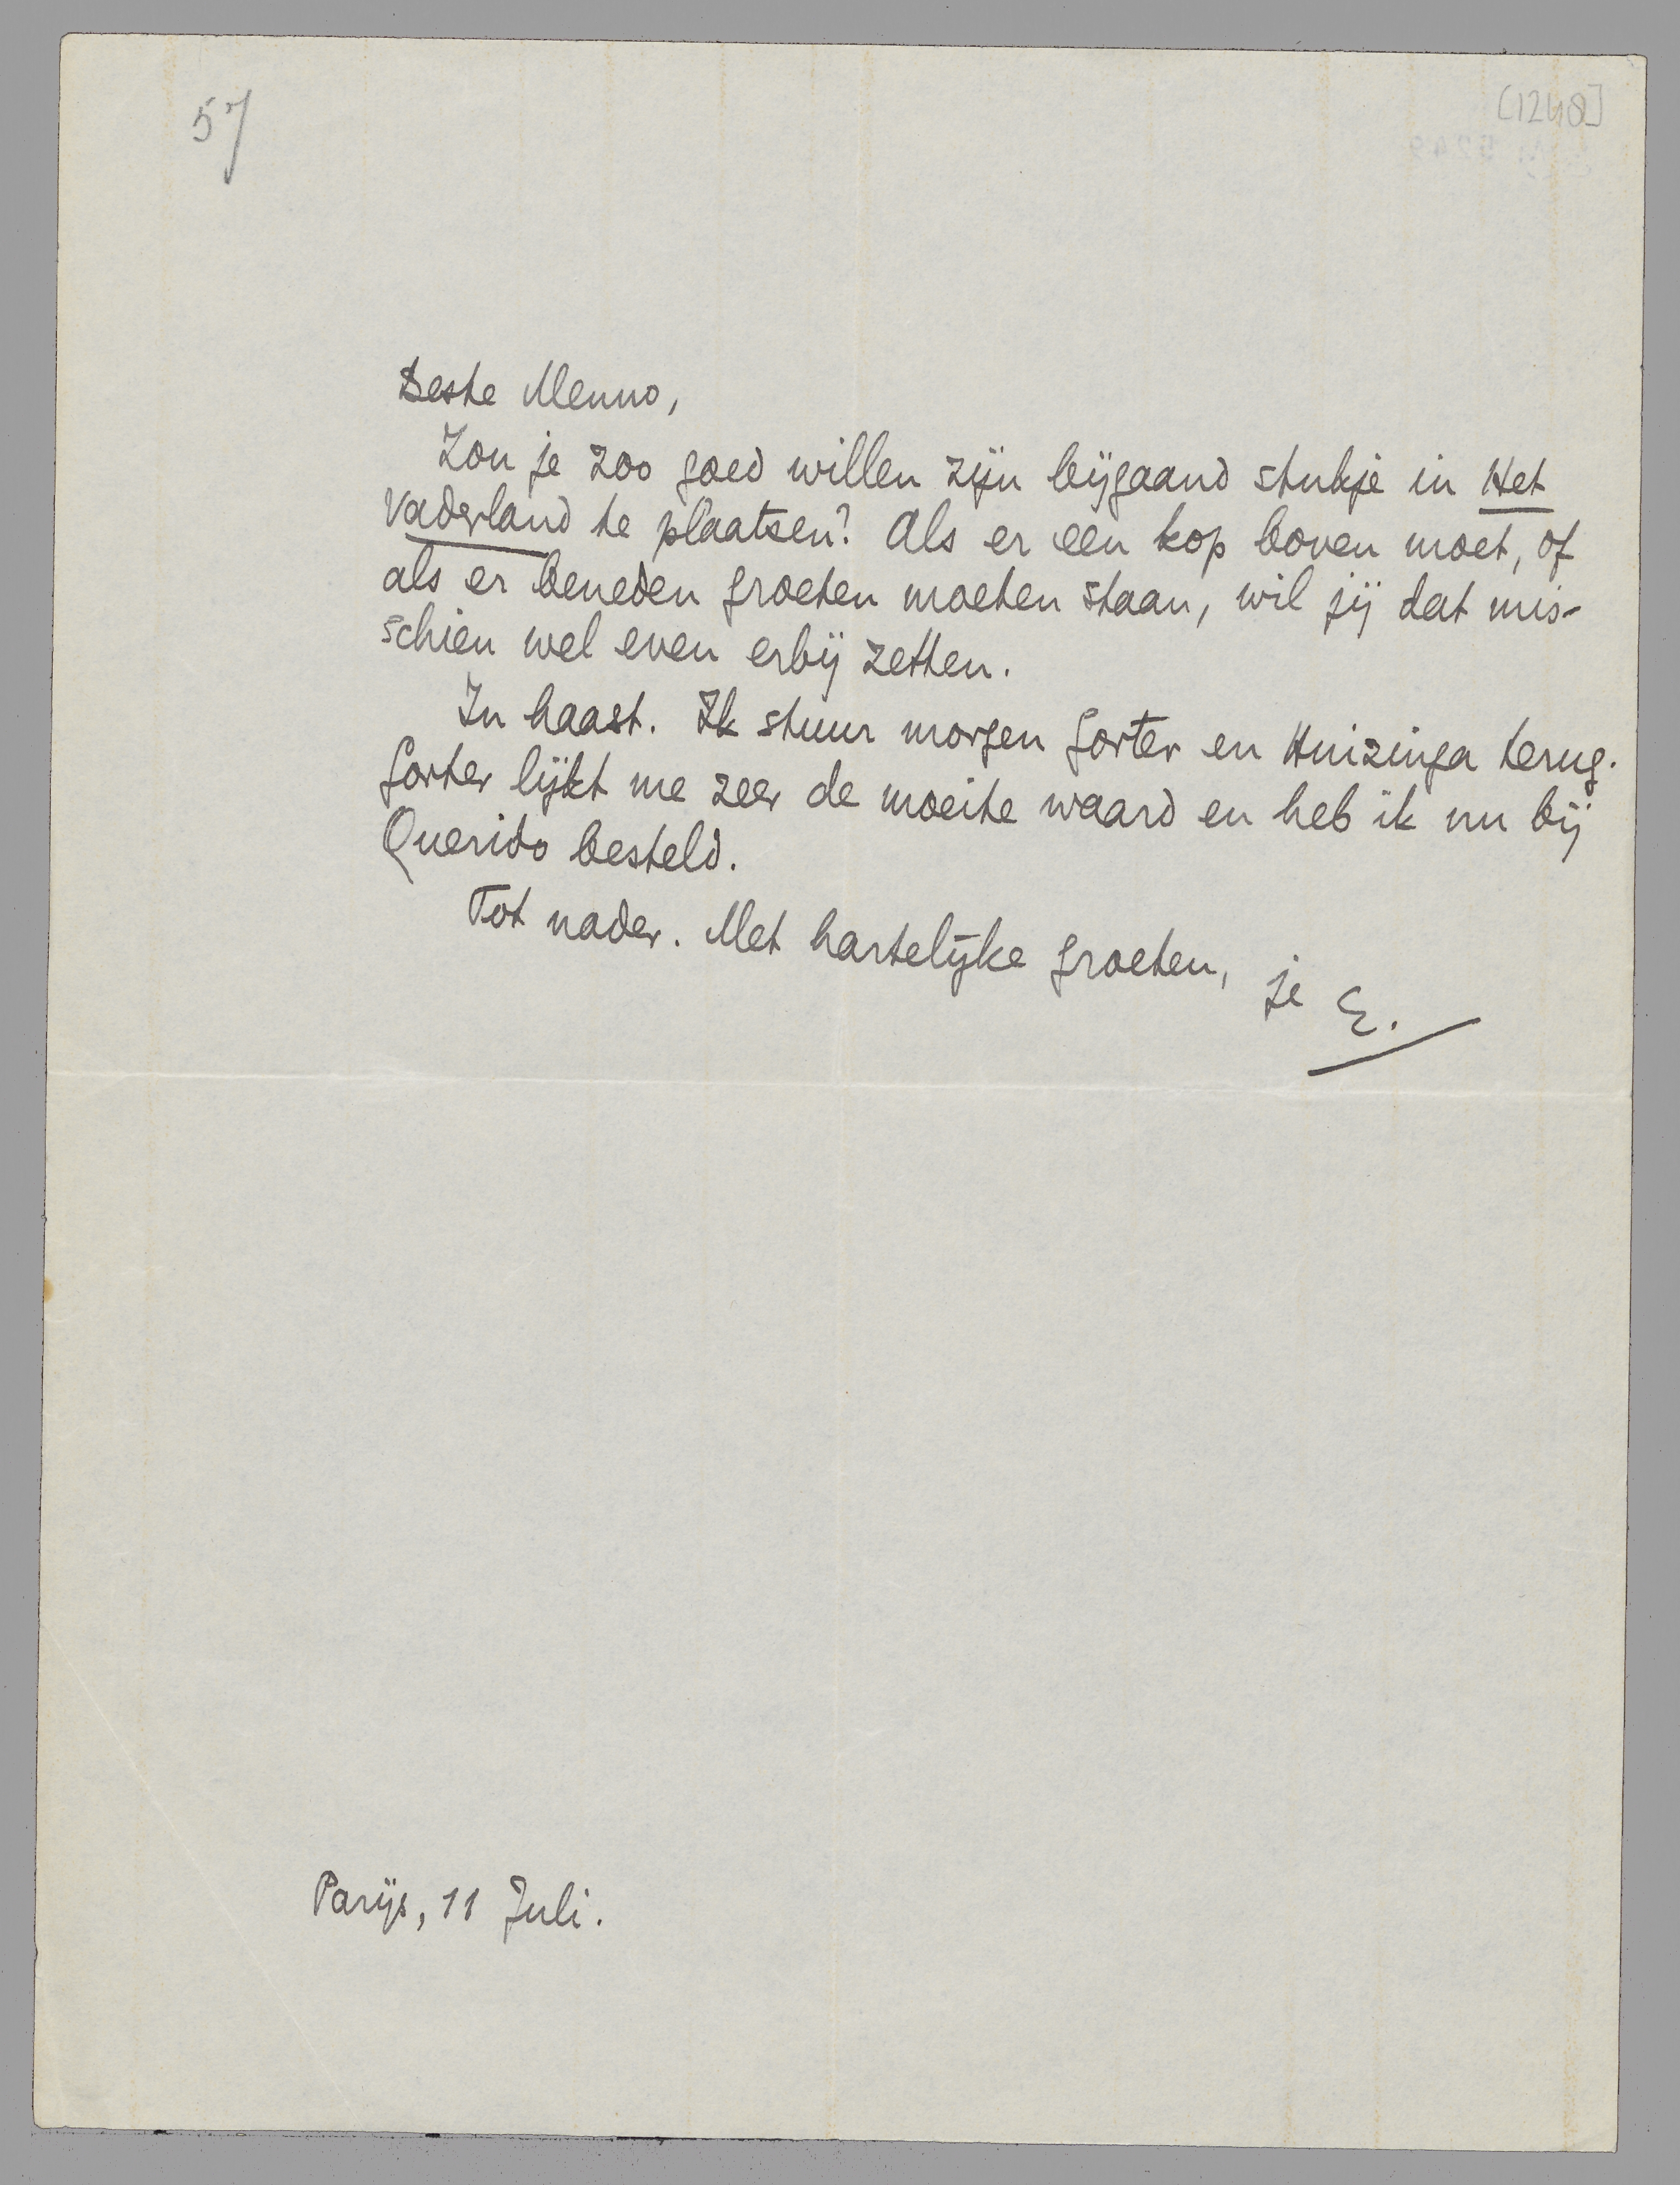 57
[1248]
Beste Menno,
Zou je zoo goed willen zijn bijgaand stukje in Het
Vaderland te plaatsen? Als er een kop boven moet, of
als er beneden groeten moeten staan, wil jij dat mis-
schien wel even erbij zetten.
In haast. Ik stuur morgen Gorter en Huizinga terug.
Gorter lijkt me zeer de moeite waard en heb ik nu bij
Querido besteld.
Tot nader. Met hartelijke groeten, je E.
Parijs, 11 Juli.